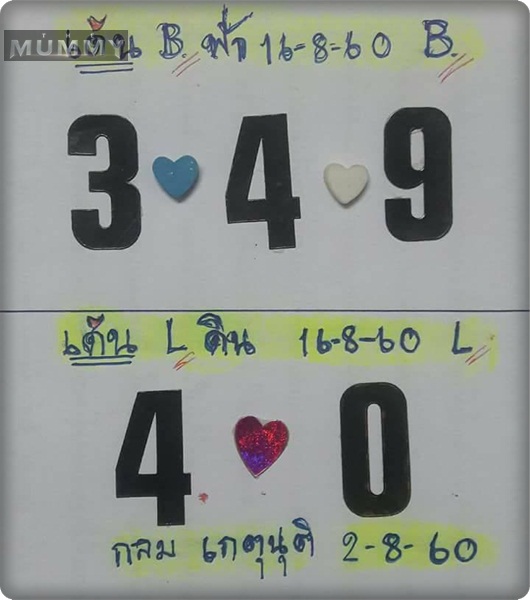 MUMMY
เด้น B. ฟ้า 16-8-60 B.
3 4 9
เด้น L ดิน 16-8-60 L
4 0
กลม เกตุนุติ 2-8-60